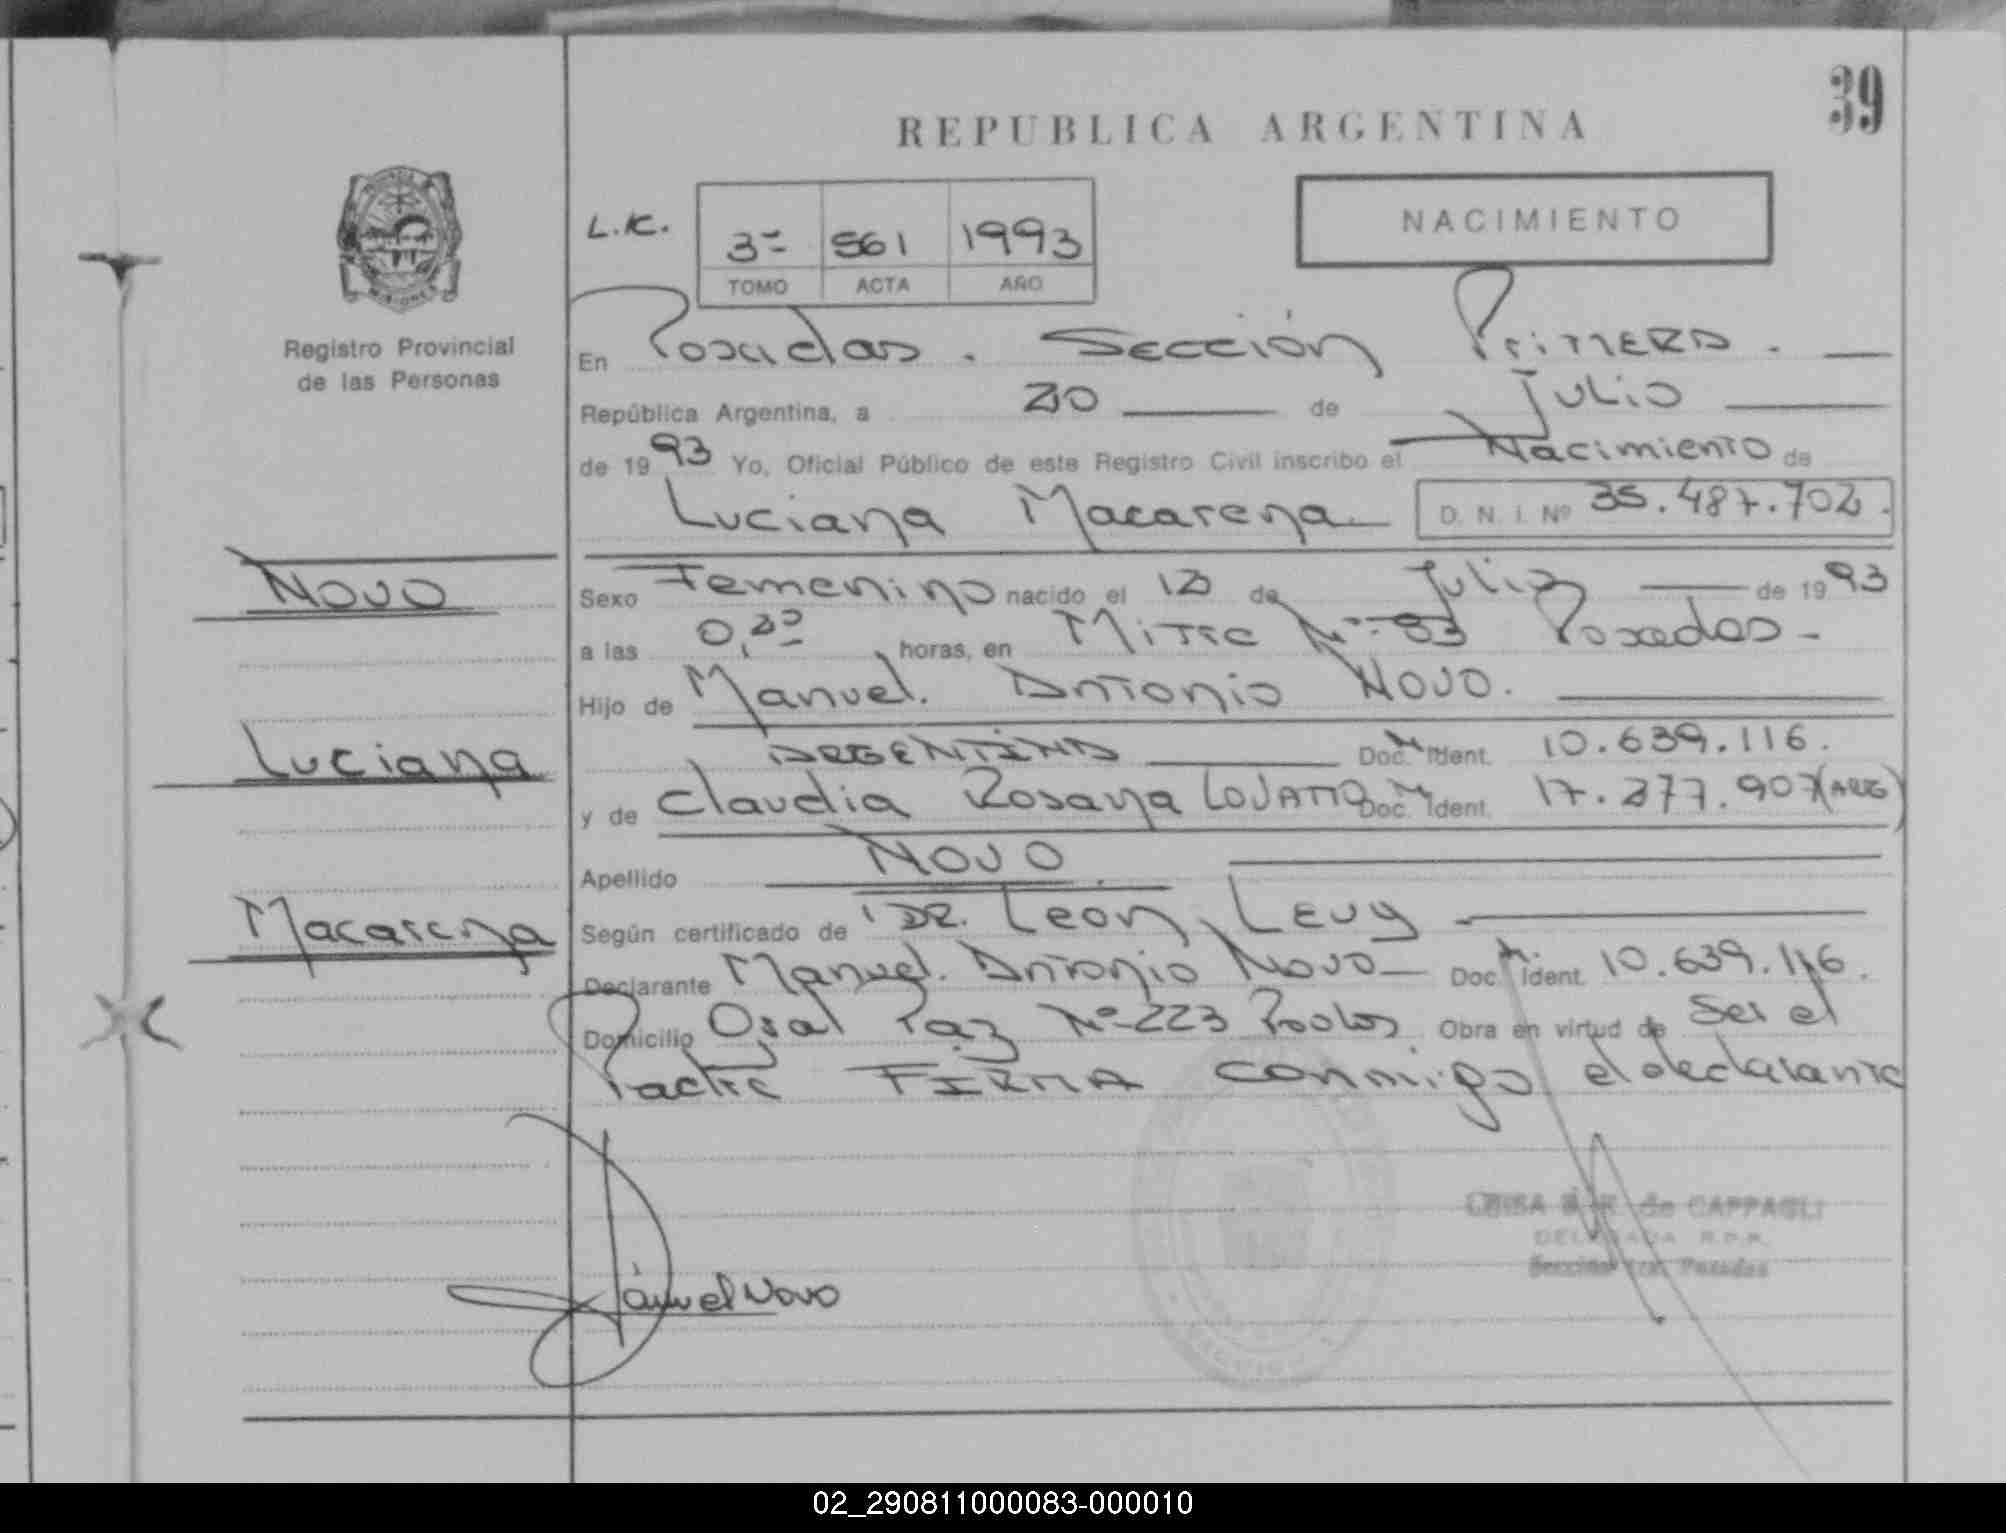 39
REPUBLICA ARGENTINA
NACIMIENTO
L.K.
3º 561 1993
TOMO ACTA AÑO
PROVINCIA
MISIONES
Registro Provincial
de las Personas
En Posadas. Sección Primera.
República Argentina, a 20 de Julio
de 1993 Yo, Oficial Público de este Registro Civil inscribo el Nacimiento de
Luciana Macarena D. N. I. Nº 35.487.702.
NOVO
Sexo Femenino nacido el 12 de Julio de 1993
a las 0,20 horas, en Mitre Nº 83 Posadas-
Hijo de Manuel Antonio NOVO.
Luciana
ARGENTINO Doc. Ident. 10.639.116.
y de Claudia Rosana LOVATTO Doc. Ident. 17.277.907 (ARG)
Apellido NOVO
Macarena
Según certificado de DR. Leon Levy
Declarante Manuel Antonio Novo Doc. Ident. 10.639.116.
Domicilio Gral Paz Nº 223 Pdas Obra en virtud de ser el
Padre FIRMA conmigo el declarante
de CAPPAGLI
DELEGADA R.P.P.
Sección 1ra. Posadas
Manuel Novo
02_290811000083-000010